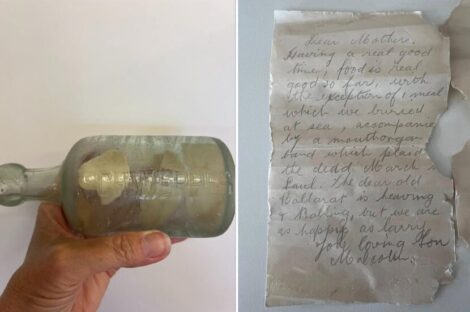 Dear Mother,
Having a real good
time, food is real
good so far, with
the exception of 1 meal
which we buried
at sea, accompanied
by a mouthorgan
band which plaid
the dead March in
Saul. The dear old
Ballarat is heaving
& Rolling, but we are
as happy as larry.
Your loving Son
Malcolm